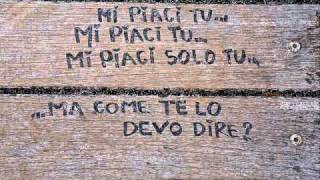 MI PIACI TU...
MI PIACI TU...
MI PIACI SOLO TU...
...MA COME TE LO
DEVO DIRE?